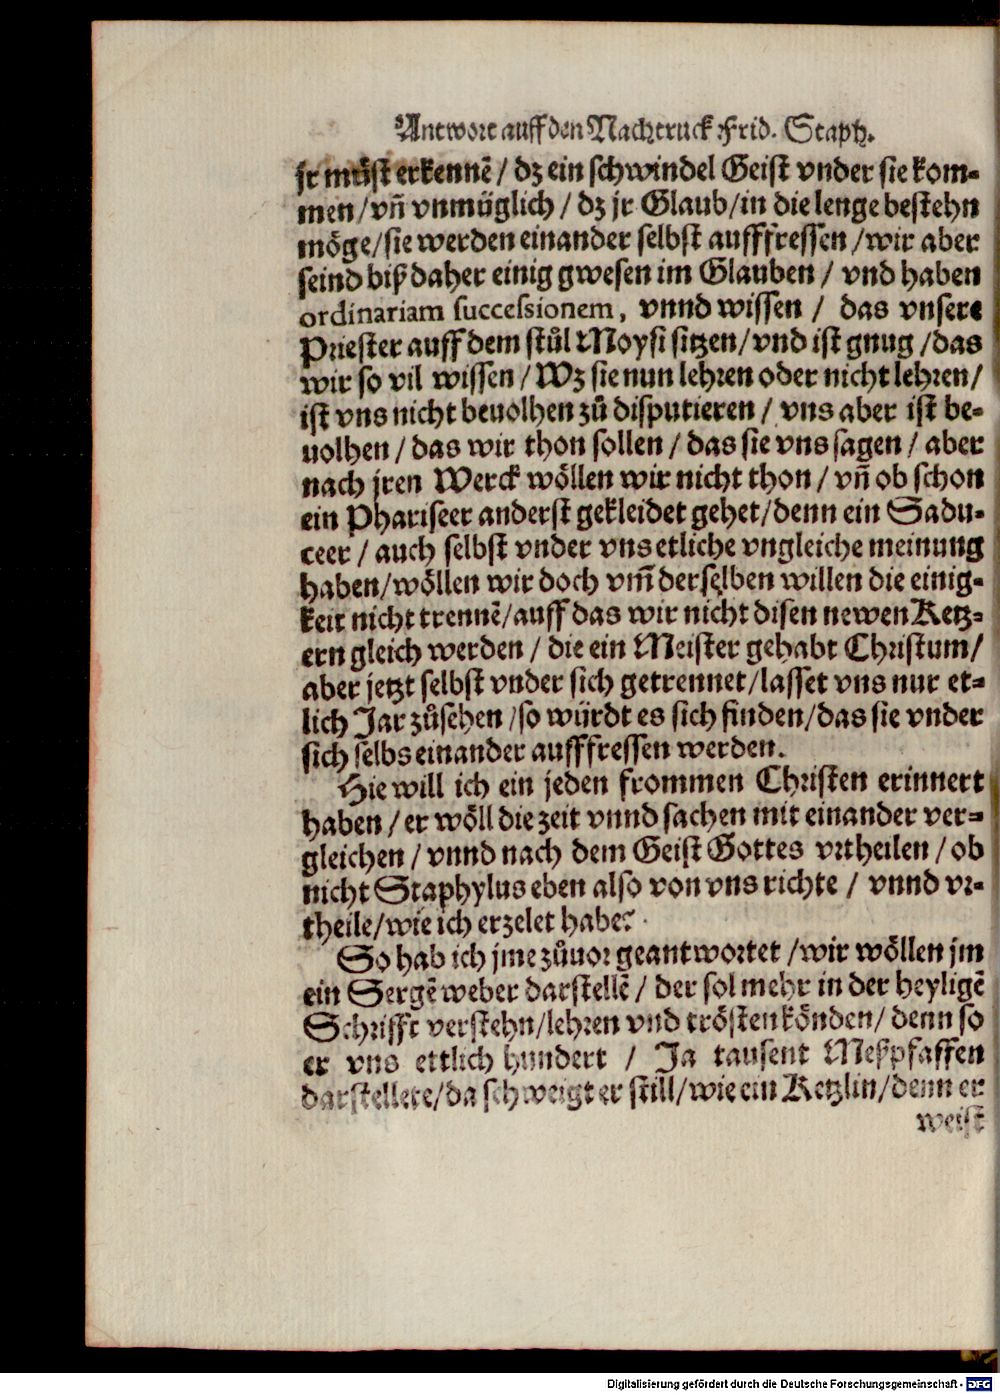 Antwort auff den Nachtruck Frid. Staph.
jr müst erkennẽ / dz ein schwindel Geist vnder sie kom-
men / vñ vnmüglich / dz jr Glaub / in die lenge bestehn
möge / sie werden einander selbst aufffressen / wir aber
seind biß daher einig gwesen im Glauben / vnd haben
ordinariam successionem, vnnd wissen / das vnsere
Priester auff dem stůl Moysi sitzen / vnd ist gnug / das
wir so vil wissen / Wz sie nun lehren oder nicht lehren /
ist vns nicht beuolhen zů disputieren / vns aber ist be-
uolhen / das wir thon sollen / das sie vns sagen / aber
nach jren Werck wöllen wir nicht thon / vñ ob schon
ein Phariseer anderst gekleidet gehet / denn ein Sadu-
ceer / auch selbst vnder vns etliche vngleiche meinung
haben / wöllen wir doch vm̃ derselben willen die einig-
keit nicht trennẽ / auff das wir nicht disen newen Ketz-
ern gleich werden / die ein Meister gehabt Christum /
aber jetzt selbst vnder sich getrennet / lasset vns nur et-
lich Jar zůsehen / so würdt es sich finden / das sie vnder
sich selbs einander aufffressen werden.
Hie will ich ein jeden frommen Christen erinnert
haben / er wöll die zeit vnnd sachen mit einander ver-
gleichen / vnnd nach dem Geist Gottes vrtheilen / ob
nicht Staphylus eben also von vns richte / vnnd vr-
theile / wie ich erzelet habe?
So hab ich jme zůuor geantwortet / wir wöllen jm
ein Sergẽ weber darstellẽ / der sol mehr in der heyligẽ
Schrifft verstehn / lehren vnd trösten könden / denn so
er vns ettlich hundert / Ja tausent Meßpfaffen
darstellete / da schweigt er still / wie ein Ketzlin / denn er
weist
Digitalisierung gefördert durch die Deutsche Forschungsgemeinschaft - DFG